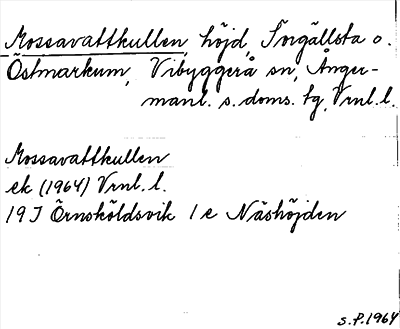 Mossavattkullen, höjd, Torgällsta o.
Östmarkum, Vibyggerå sn, Ånger-
manl. s. doms. tg, Vrnl. l.
Mossavattkullen
ek (1964) Vrnl. l.
19 J Örnsköldsvik 1 e Näshöjden
S.P. 1964